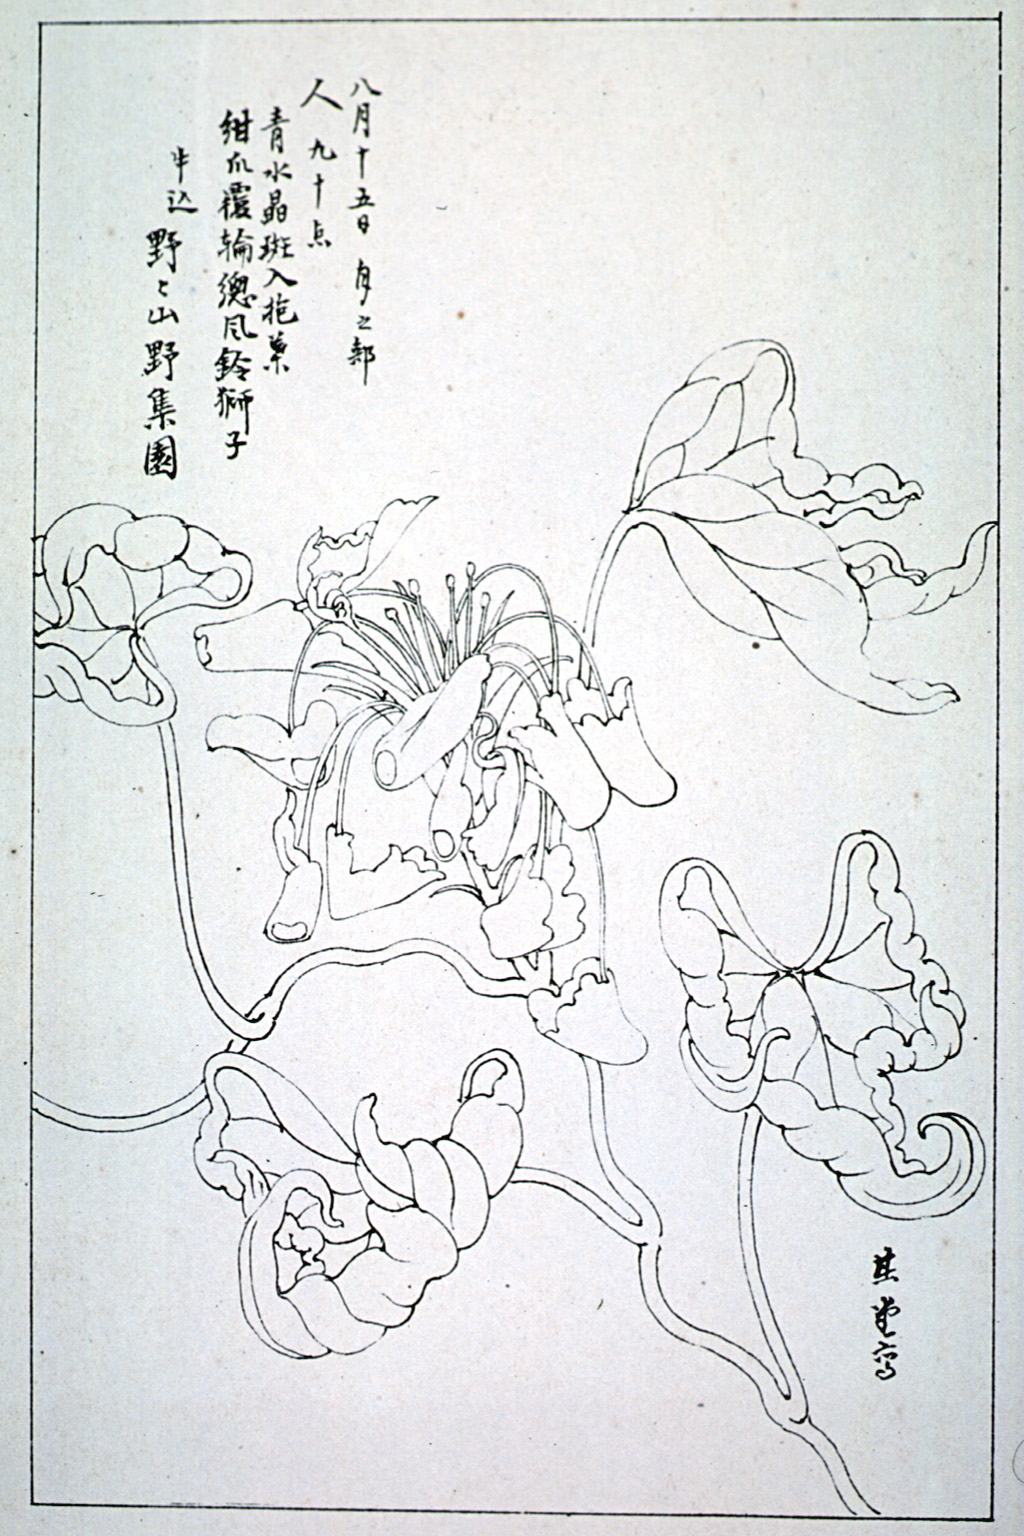 八月十五日 月之部
人 九十点
青水晶斑入抱葉
紺爪覆輪總風鈴獅子
牛込
野々山野集園
其堂寫